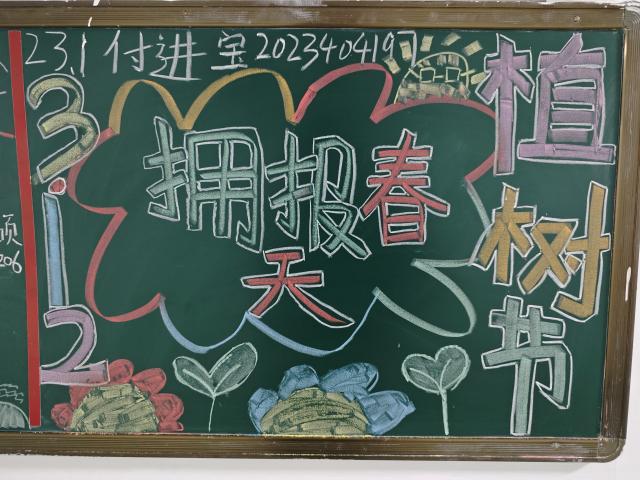 23.1 付进宝 2023404197
3·12
拥报春
天
植树节
206